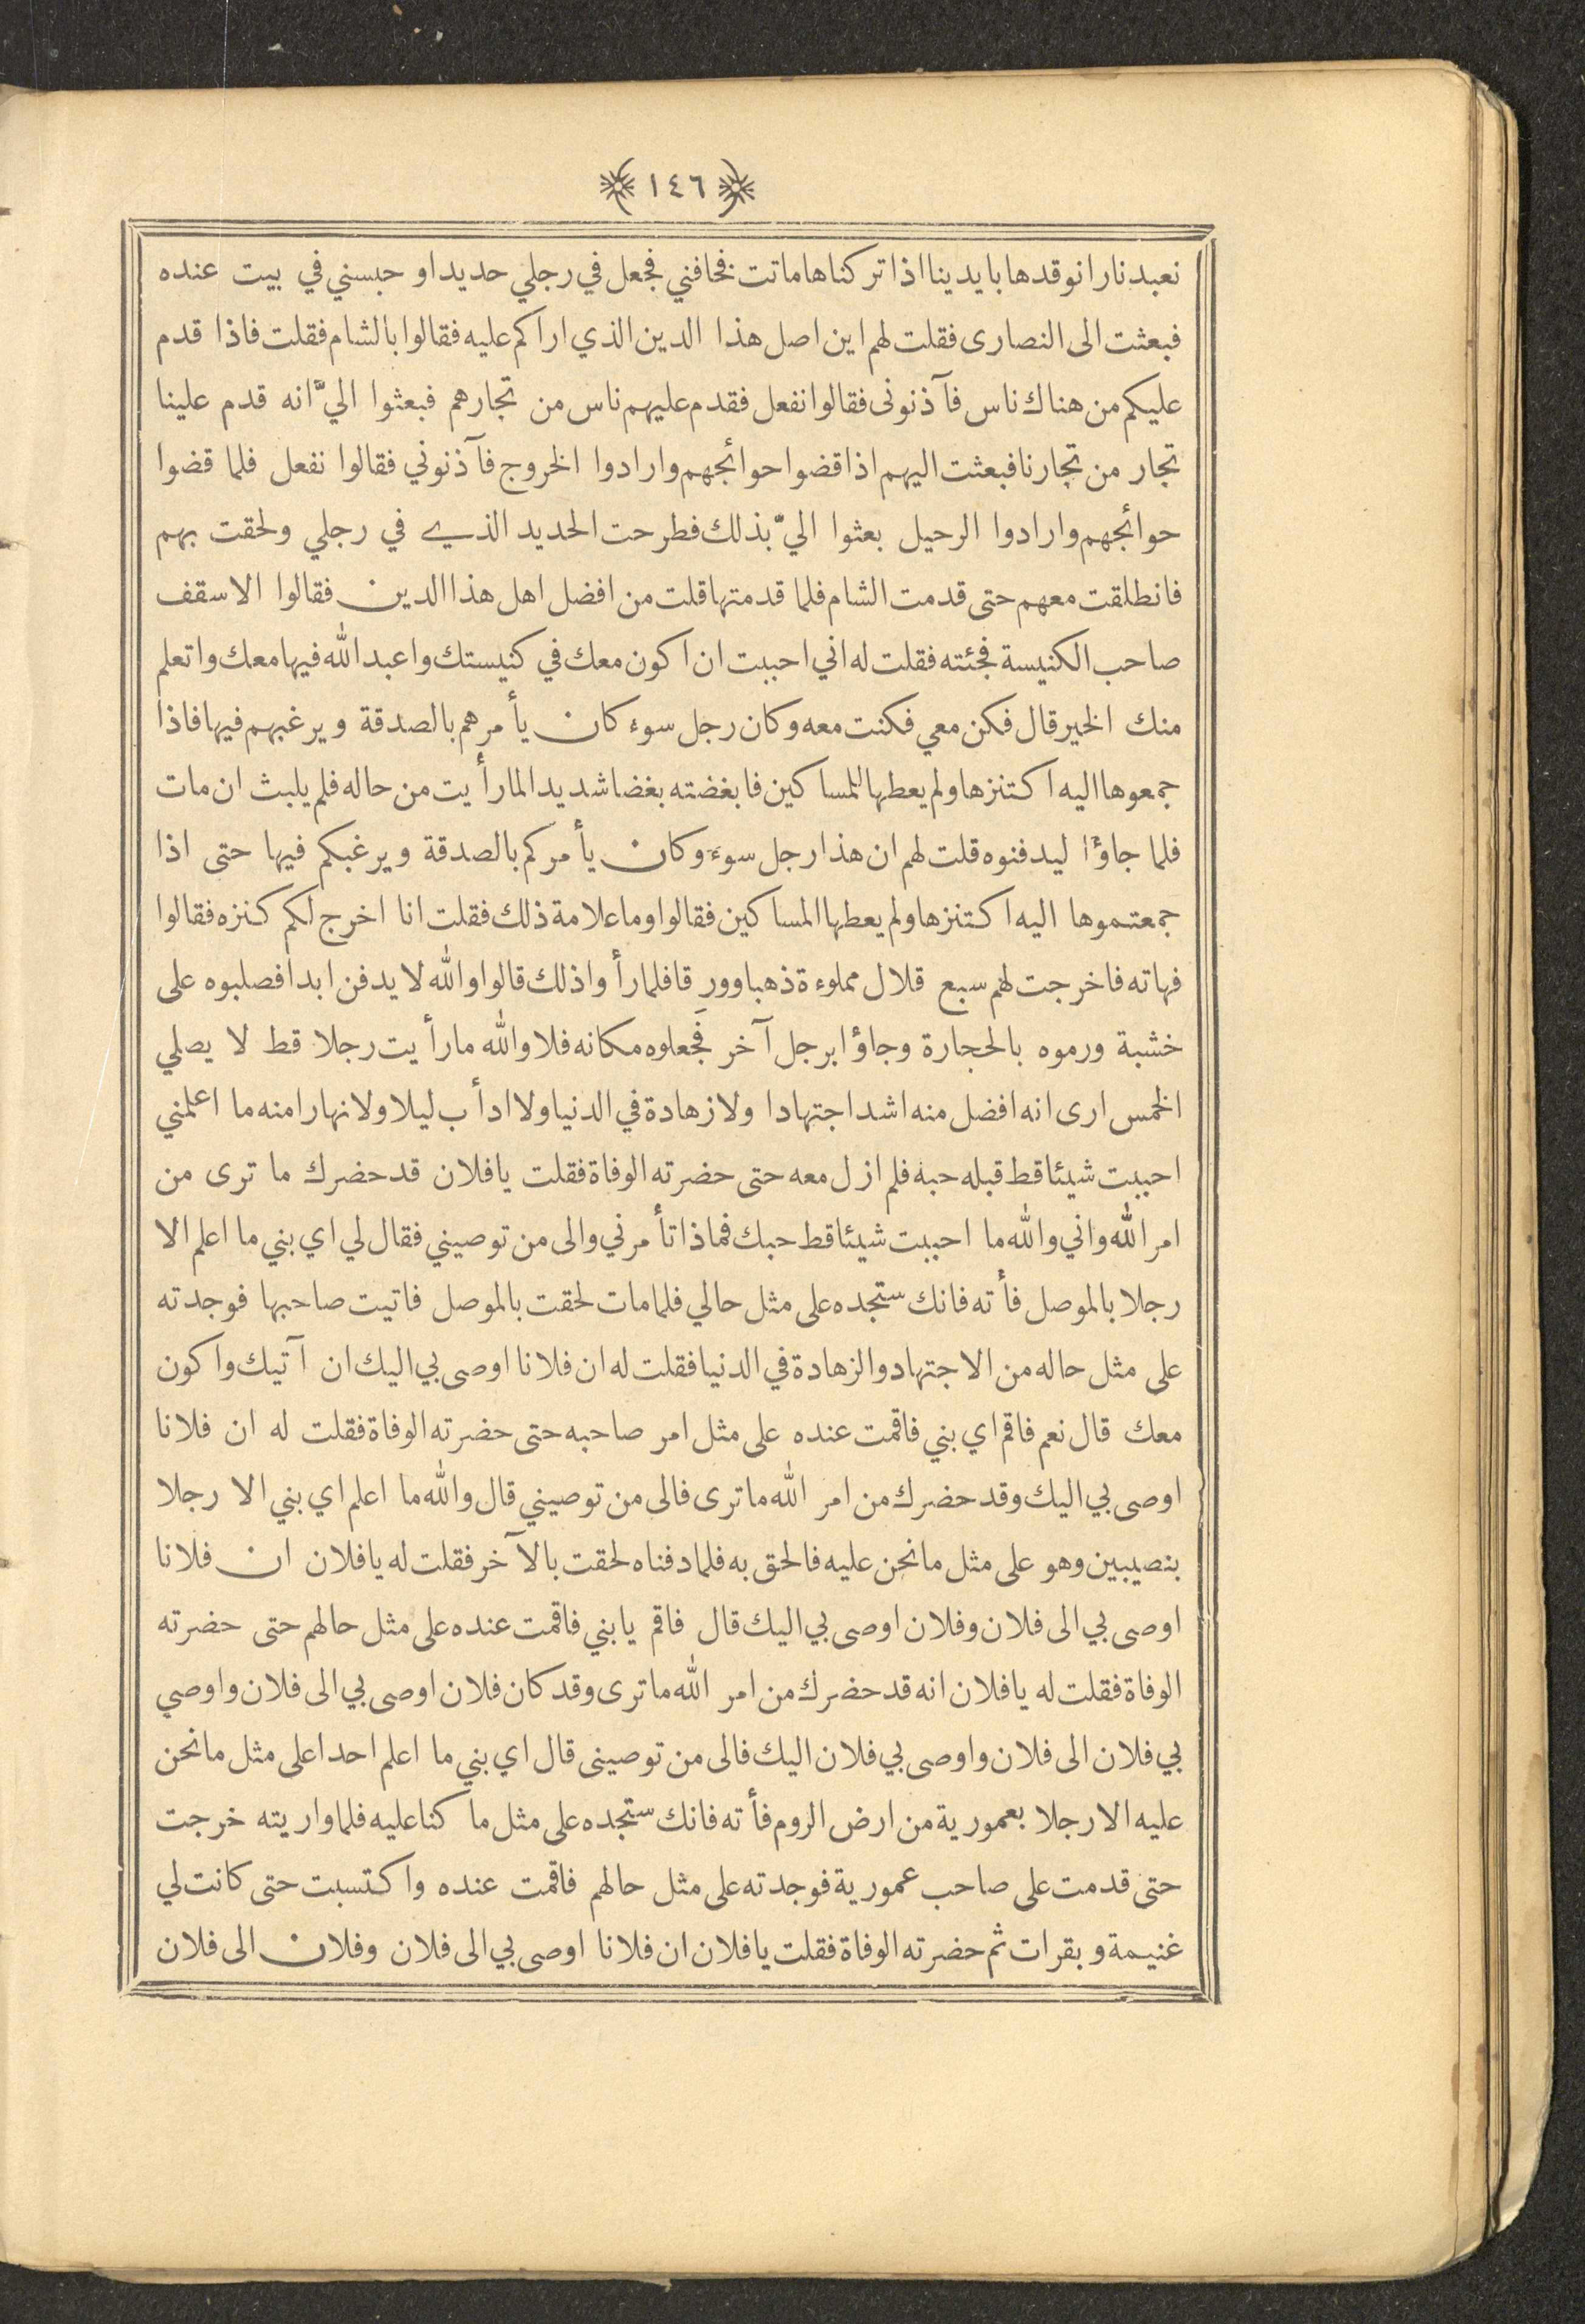 ١٤٦
نعبد نارا نوقدها بايدينا اذا تركناها ماتت فخافني فجعل في رجلي حديدا و حبسني في بيت عنده
فبعثت الى النصارى فقلت لهم اين اصل هذا الدين الذي اراكم عليه فقالوا بالشام فقلت فاذا قدم
عليكم من هناك ناس فآذنونى فقالوا نفعل فقدم عليهم ناس من تجارهم فبعثوا اليَّ انه قدم علينا
تجار من تجارنا فبعثت اليهم اذا قضوا حوائجهم وارادوا الخروج فآذنوني فقالوا نفعل فلما قضوا
حوائجهم وارادوا الرحيل بعثوا اليَّ بذلك فطرحت الحديد الذي في رجلي ولحقت بهم
فانطلقت معهم حتى قدمت الشام فلما قدمتها قلت من افضل اهل هذا الدين فقالوا الاسقف
صاحب الكنيسة فجئته فقلت له اني احببت ان اكون معك في كنيستك واعبد الله فيها معك واتعلم
منك الخير قال فكن معي فكنت معه وكان رجل سوء كان يأمرهم بالصدقة ويرغبهم فيها فاذا
جمعوها اليه اكتنزها ولم يعطها للمساكين فابغضته بغضا شديدا لما رأيت من حاله فلم يلبث ان مات
فلما جاؤا ليدفنوه قلت لهم ان هذا رجل سوء وكان يأمركم بالصدقة ويرغبكم فيها حتى اذا
جمعتموها اليه اكتنزها ولم يعطها المساكين فقالوا وما علامة ذلك فقلت انا اخرج لكم كنزه فقالوا
فهاته فاخرجت لهم سبع قلال مملوءة ذهبا وورقا فلما رأوا ذلك قالوا والله لا يدفن ابدا فصلبوه على
خشبة ورموه بالحجارة وجاؤا برجل آخر فَجعلوه مكانه فلا والله ما رأيت رجلا قط لا يصلي
الخمس ارى انه افضل منه اشد اجتهادا ولا زهادة في الدنيا ولا ادأب ليلا ولا نهارا منه ما اعلمني
احببت شيئا قط قبله حبه فلم ازل معه حتى حضرته الوفاة فقلت يا فلان قد حضرك ما ترى من
امر الله واني والله ما احببت شيئا قط حبك فماذا تأمرني والى من توصيني فقال لي اي بني ما اعلم الا
رجلا بالموصل فأته فانك ستجده على مثل حالي فلما مات لحقت بالموصل فاتيت صاحبها فوجدته
على مثل حاله من الاجتهاد والزهادة في الدنيا فقلت له ان فلانا اوصى بي اليك ان آتيك واكون
معك قال نعم فاقم اي بني فاقمت عنده على مثل امر صاحبه حتى حضرته الوفاة فقلت له ان فلانا
اوصى بي اليك وقد حضرك من امر الله ما ترى فالى من توصيني قال والله ما اعلم اي بني الا رجلا
بنصيبين وهو على مثل ما نحن عليه فالحق به فلما دفناه لحقت بالآخر فقلت له يا فلان ان فلانا
اوصى بي الى فلان وفلان اوصى بي اليك قال فاقم يا بني فاقمت عنده على مثل حالهم حتى حضرته
الوفاة فقلت له يا فلان انه قد حضرك من امر الله ما ترى وقد كان فلان اوصى بي الى فلان واوصي
بي فلان الى فلان واوصى بي فلان اليك فالى من توصينى قال اي بني ما اعلم احدا على مثل ما نحن
عليه الا رجلا بعمورية من ارض الروم فأته فانك ستجده على مثل ما كنا عليه فلما واريته خرجت
حتى قدمت على صاحب عمورية فوجدته على مثل حالهم فاقمت عنده واكتسبت حتى كانت لي
غنيمة وبقرات ثم حضرته الوفاة فقلت يا فلان ان فلانا اوصى بي الى فلان وفلان الى فلان